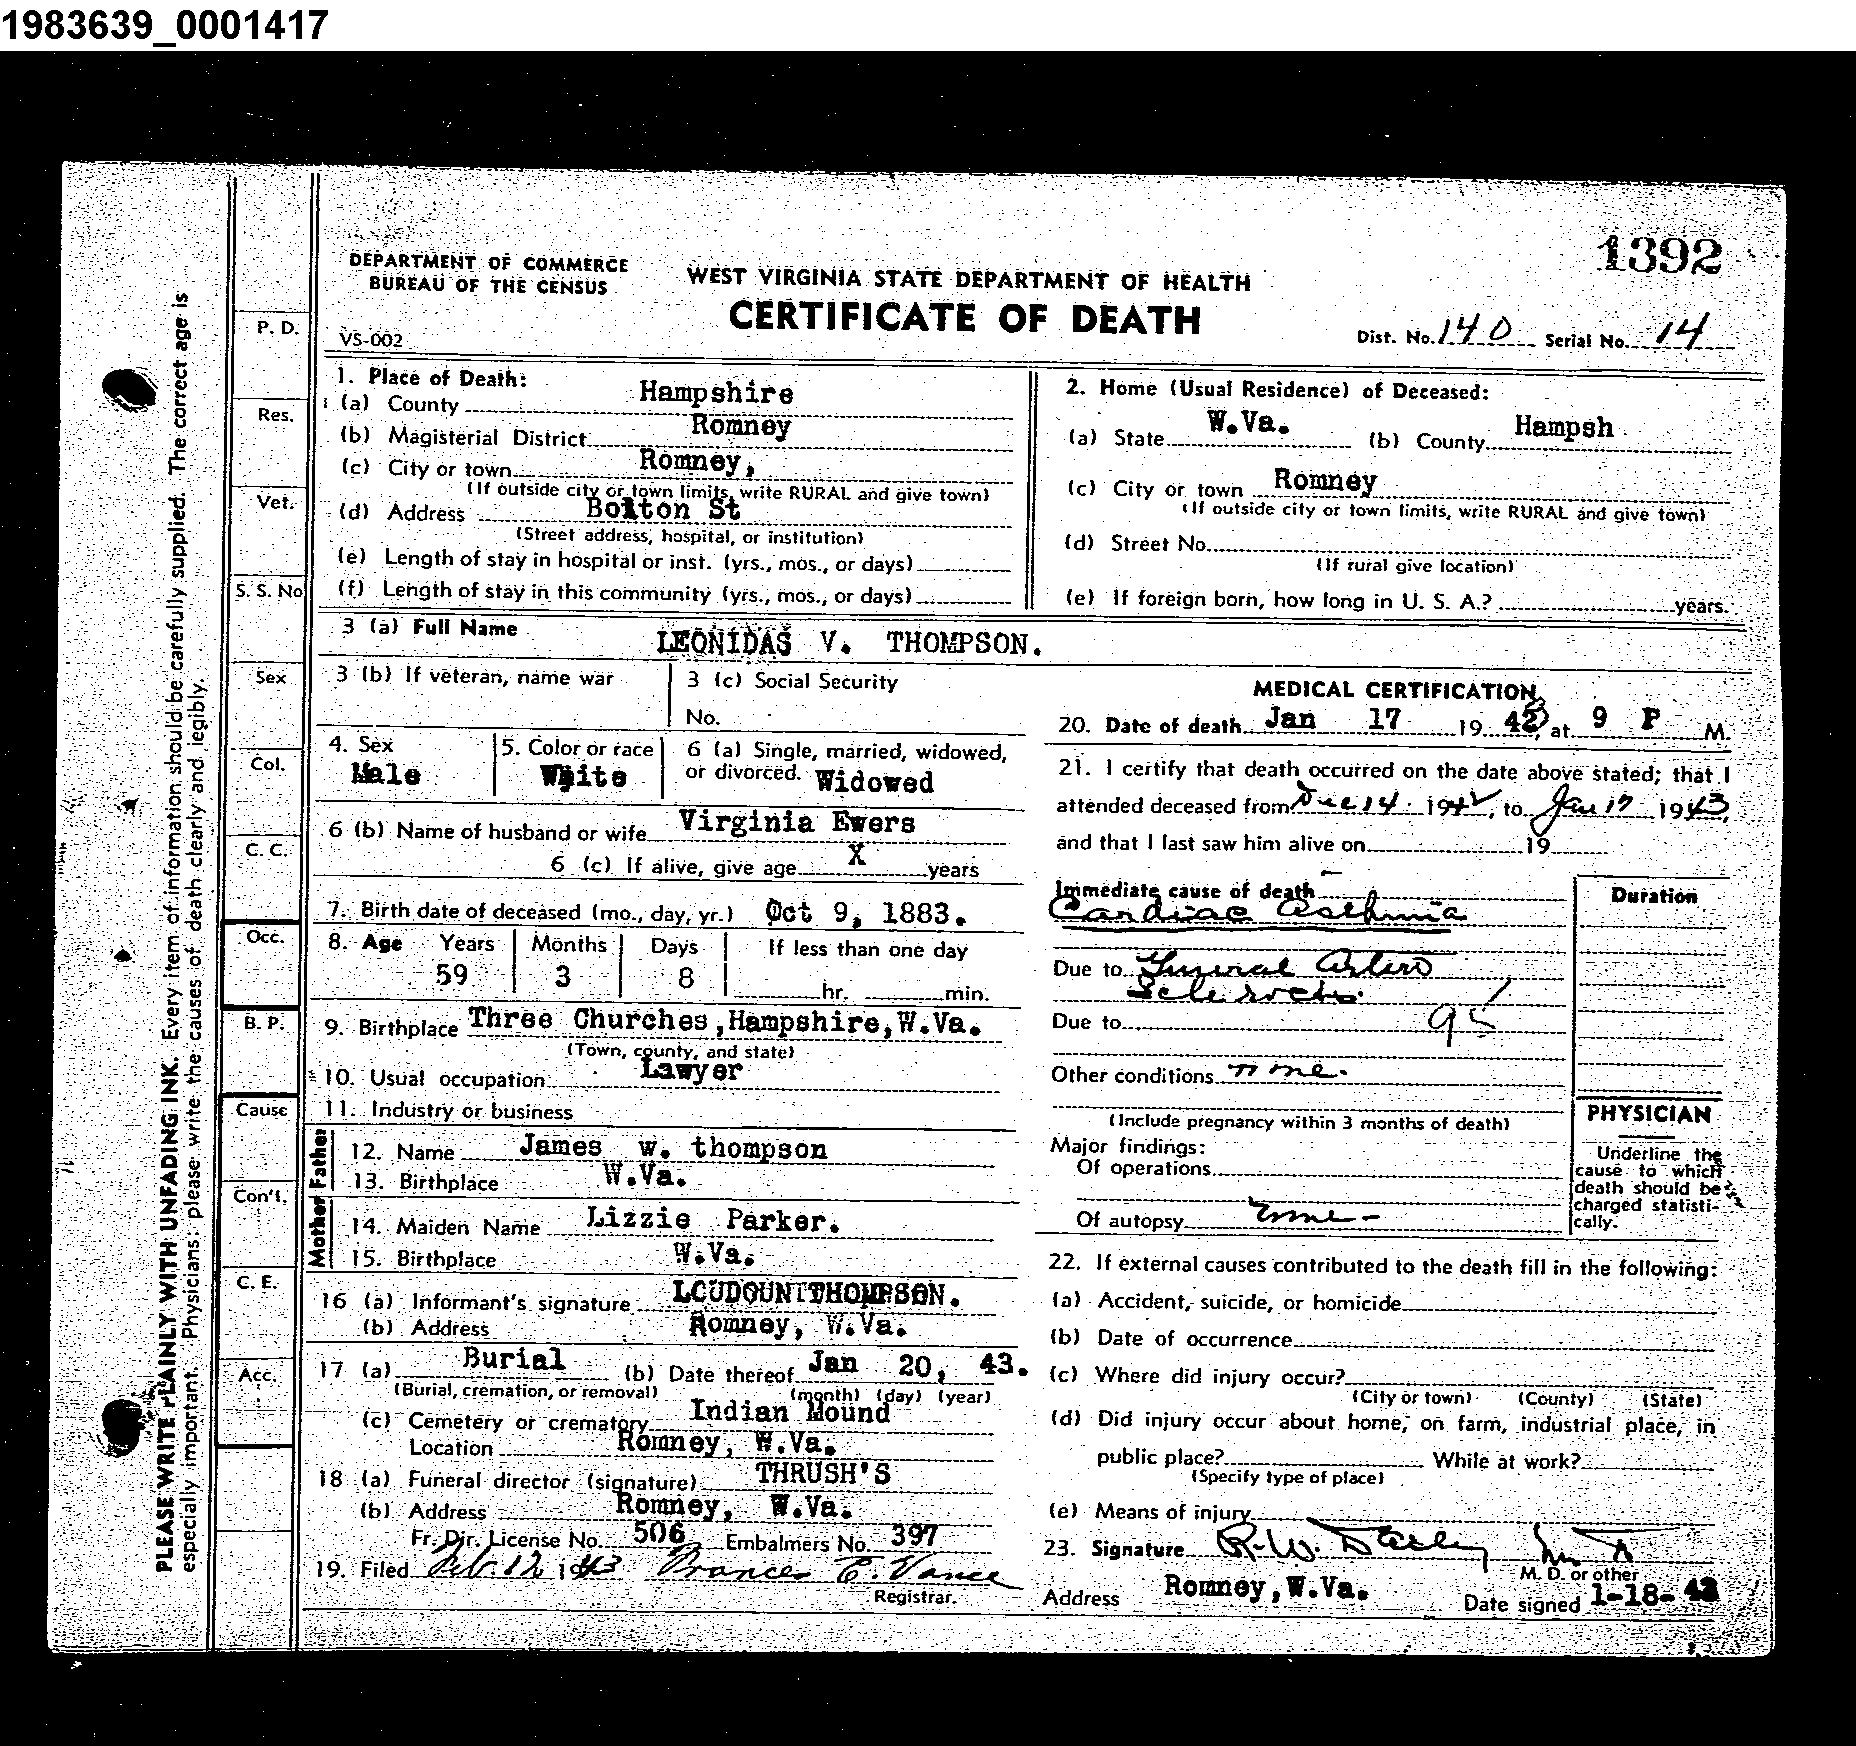 1983639_0001417
1392
DEPARTMENT OF COMMERCE
BUREAU OF THE CENSUS
WEST VIRGINIA STATE DEPARTMENT OF HEALTH
CERTIFICATE OF DEATH
VS-002
Dist. No. 140 Serial No. 14
PLEASE WRITE PLAINLY WITH UNFADING INK. Every item of information should be carefully supplied. The correct age is
especially important. Physicians: please write the causes of death clearly and legibly.
P. D.
Res.
Vet.
S. S. No
Sex
Col.
C. C.
Occ.
B. P.
Cause
Con't.
C. E.
Acc.
1. Place of Death:
(a) County Hampshire
(b) Magisterial District Romney
(c) City or town Romney,
(If outside city or town limits, write RURAL and give town)
(d) Address Bolton St
(Street address, hospital, or institution)
(e) Length of stay in hospital or inst. (yrs., mos., or days)
(f) Length of stay in this community (yrs., mos., or days)
2. Home (Usual Residence) of Deceased:
(a) State W.Va. (b) County Hampsh
(c) City or town Romney
(If outside city or town limits, write RURAL and give town)
(d) Street No.
(If rural give location)
(e) If foreign born, how long in U. S. A.? years.
3 (a) Full Name LEONIDAS V. THOMPSON.
3 (b) If veteran, name war
3 (c) Social Security
No.
4. Sex Male
5. Color or race White
6 (a) Single, married, widowed,
or divorced. Widowed
6 (b) Name of husband or wife Virginia Ewers
6 (c) If alive, give age X years
7. Birth date of deceased (mo., day, yr.) Oct 9, 1883.
8. Age Years Months Days If less than one day
59 3 8 hr. min.
9. Birthplace Three Churches, Hampshire, W.Va.
(Town, county, and state)
10. Usual occupation Lawyer
11. Industry or business
Father
12. Name James w. thompson
13. Birthplace W.Va.
Mother
14. Maiden Name Lizzie Parker.
15. Birthplace W.Va.
16 (a) Informant's signature LOUDOUN THOMPSON.
(b) Address Romney, W.Va.
17 (a) Burial (b) Date thereof Jan 20, 43.
(Burial, cremation, or removal) (month) (day) (year)
(c) Cemetery or crematory Indian Mound
Location Romney, W.Va.
18 (a) Funeral director (signature) THRUSH'S
(b) Address Romney, W.Va.
Fr. Dir. License No. 506 Embalmers No. 397
19. Filed Feb. 12 1943 Frances E. Vance
Registrar.
MEDICAL CERTIFICATION
20. Date of death Jan 17 1943, at 9 P M.
21. I certify that death occurred on the date above stated; that I
attended deceased from Dec 14 1942, to Jan 17 1943,
and that I last saw him alive on 19
Immediate cause of death
Cardiac Asthma
Due to General Arterio
Sclerosis.
Due to 95
Other conditions none.
(Include pregnancy within 3 months of death)
Major findings:
Of operations
Of autopsy none -
Duration
PHYSICIAN
Underline the
cause to which
death should be
charged statisti-
cally.
22. If external causes contributed to the death fill in the following:
(a) Accident, suicide, or homicide
(b) Date of occurrence
(c) Where did injury occur?
(City or town) (County) (State)
(d) Did injury occur about home, on farm, industrial place, in
public place? While at work?
(Specify type of place)
(e) Means of injury
23. Signature R. W. Dailey
M. D. or other
Address Romney, W.Va. Date signed 1-18-43